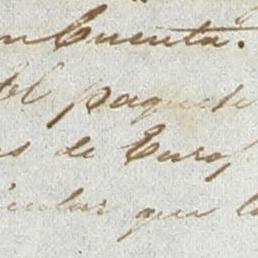 en Cuenta.
el paquete
s de Euro
icular que l